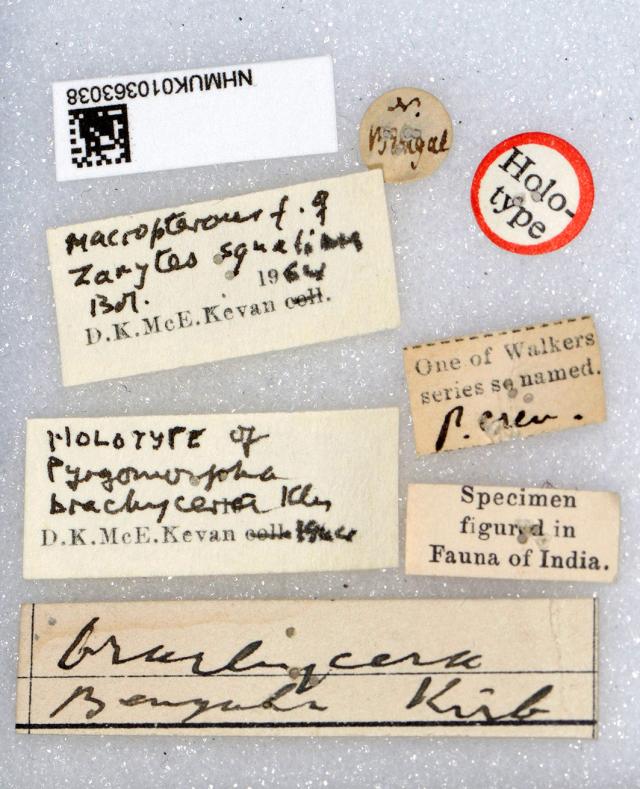 NHMUK010363038
N.
Bengal
Holo-
type
Macropterous f. of
Zarytes squalinus
Bol. 1964
D.K.McE.Kevan coll.
One of Walkers
series so named.
P. cren.
HOLOTYPE of
Pyrgomorpha
brachycera Kby
D.K.McE.Kevan coll. 1964
Specimen
figured in
Fauna of India.
brachycera
Kirb